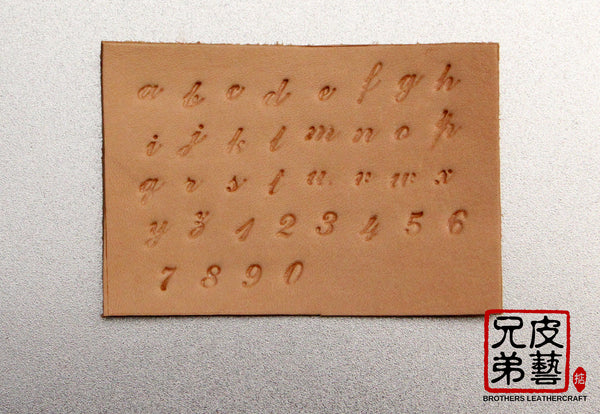 a b c d e f g h
i j k l m n o p
q r s t u v w x
y z 1 2 3 4 5 6
7 8 9 0
兄弟皮藝
BROTHERS LEATHERCRAFT